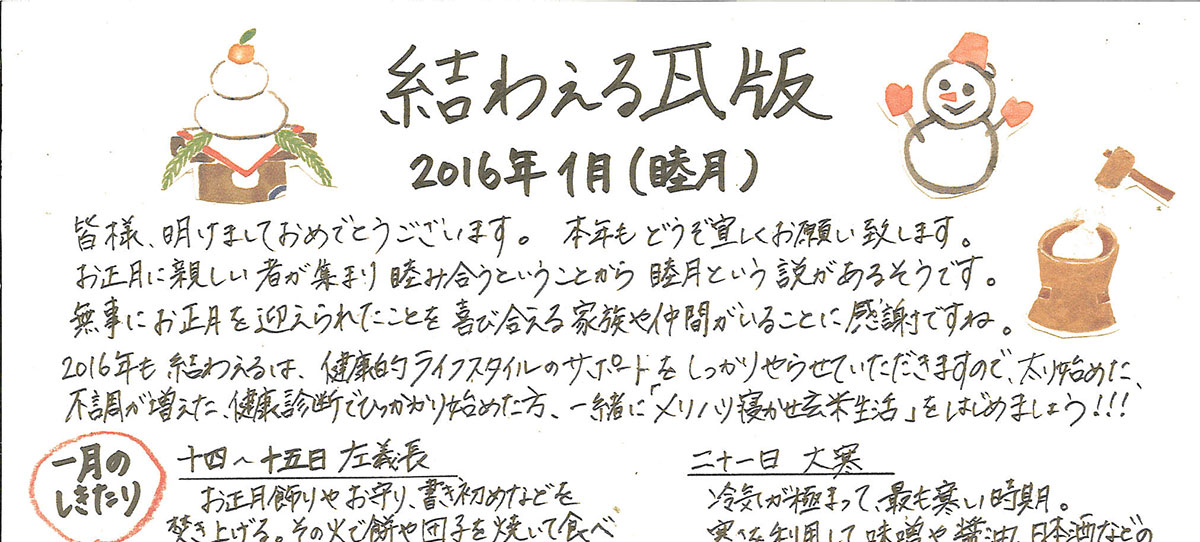 結わえる瓦版
2016年1月(睦月)
皆様、明けましておめでとうございます。 本年もどうぞ宜しくお願い致します。
お正月に親しい者が集まり睦み合うということから睦月という説があるそうです。
無事にお正月を迎えられたことを喜び合える家族や仲間がいることに感謝ですね。
2016年も結わえるは、健康的ライフスタイルのサポートをしっかりやらせていただきますので、太り始めた、
不調が増えた、健康診断でひっかかり始めた方、一緒に「メリハリ寝かせ玄米生活」をはじめましょう!!!
一月の
しきたり
十四～十五日 左義長
お正月飾りやお守り、書き初めなどを
焚き上げる。その火で餅や団子を焼いて食べ
二十一日 大寒
冷気が極まって、最も寒い時期。
寒さを利用して味噌や醤油、日本酒などの